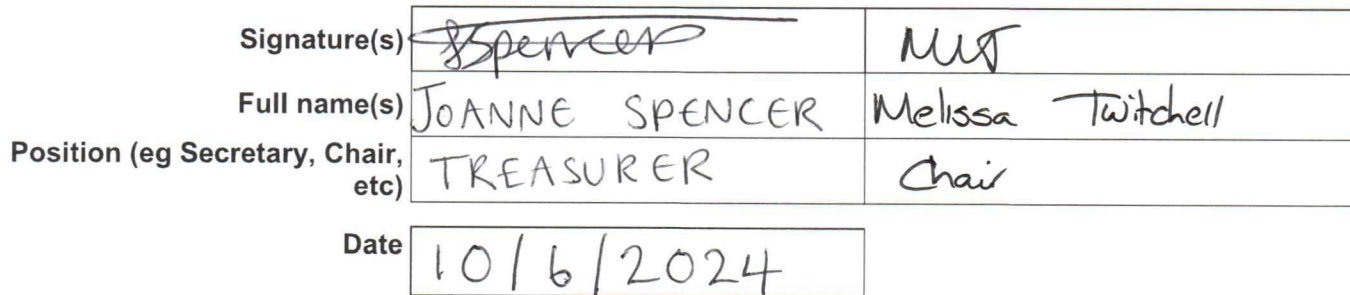 Signature(s) JSpencer
Full name(s) JOANNE SPENCER Melissa Twitchell
Position (eg Secretary, Chair,
etc) TREASURER Chair
Date 10/6/2024